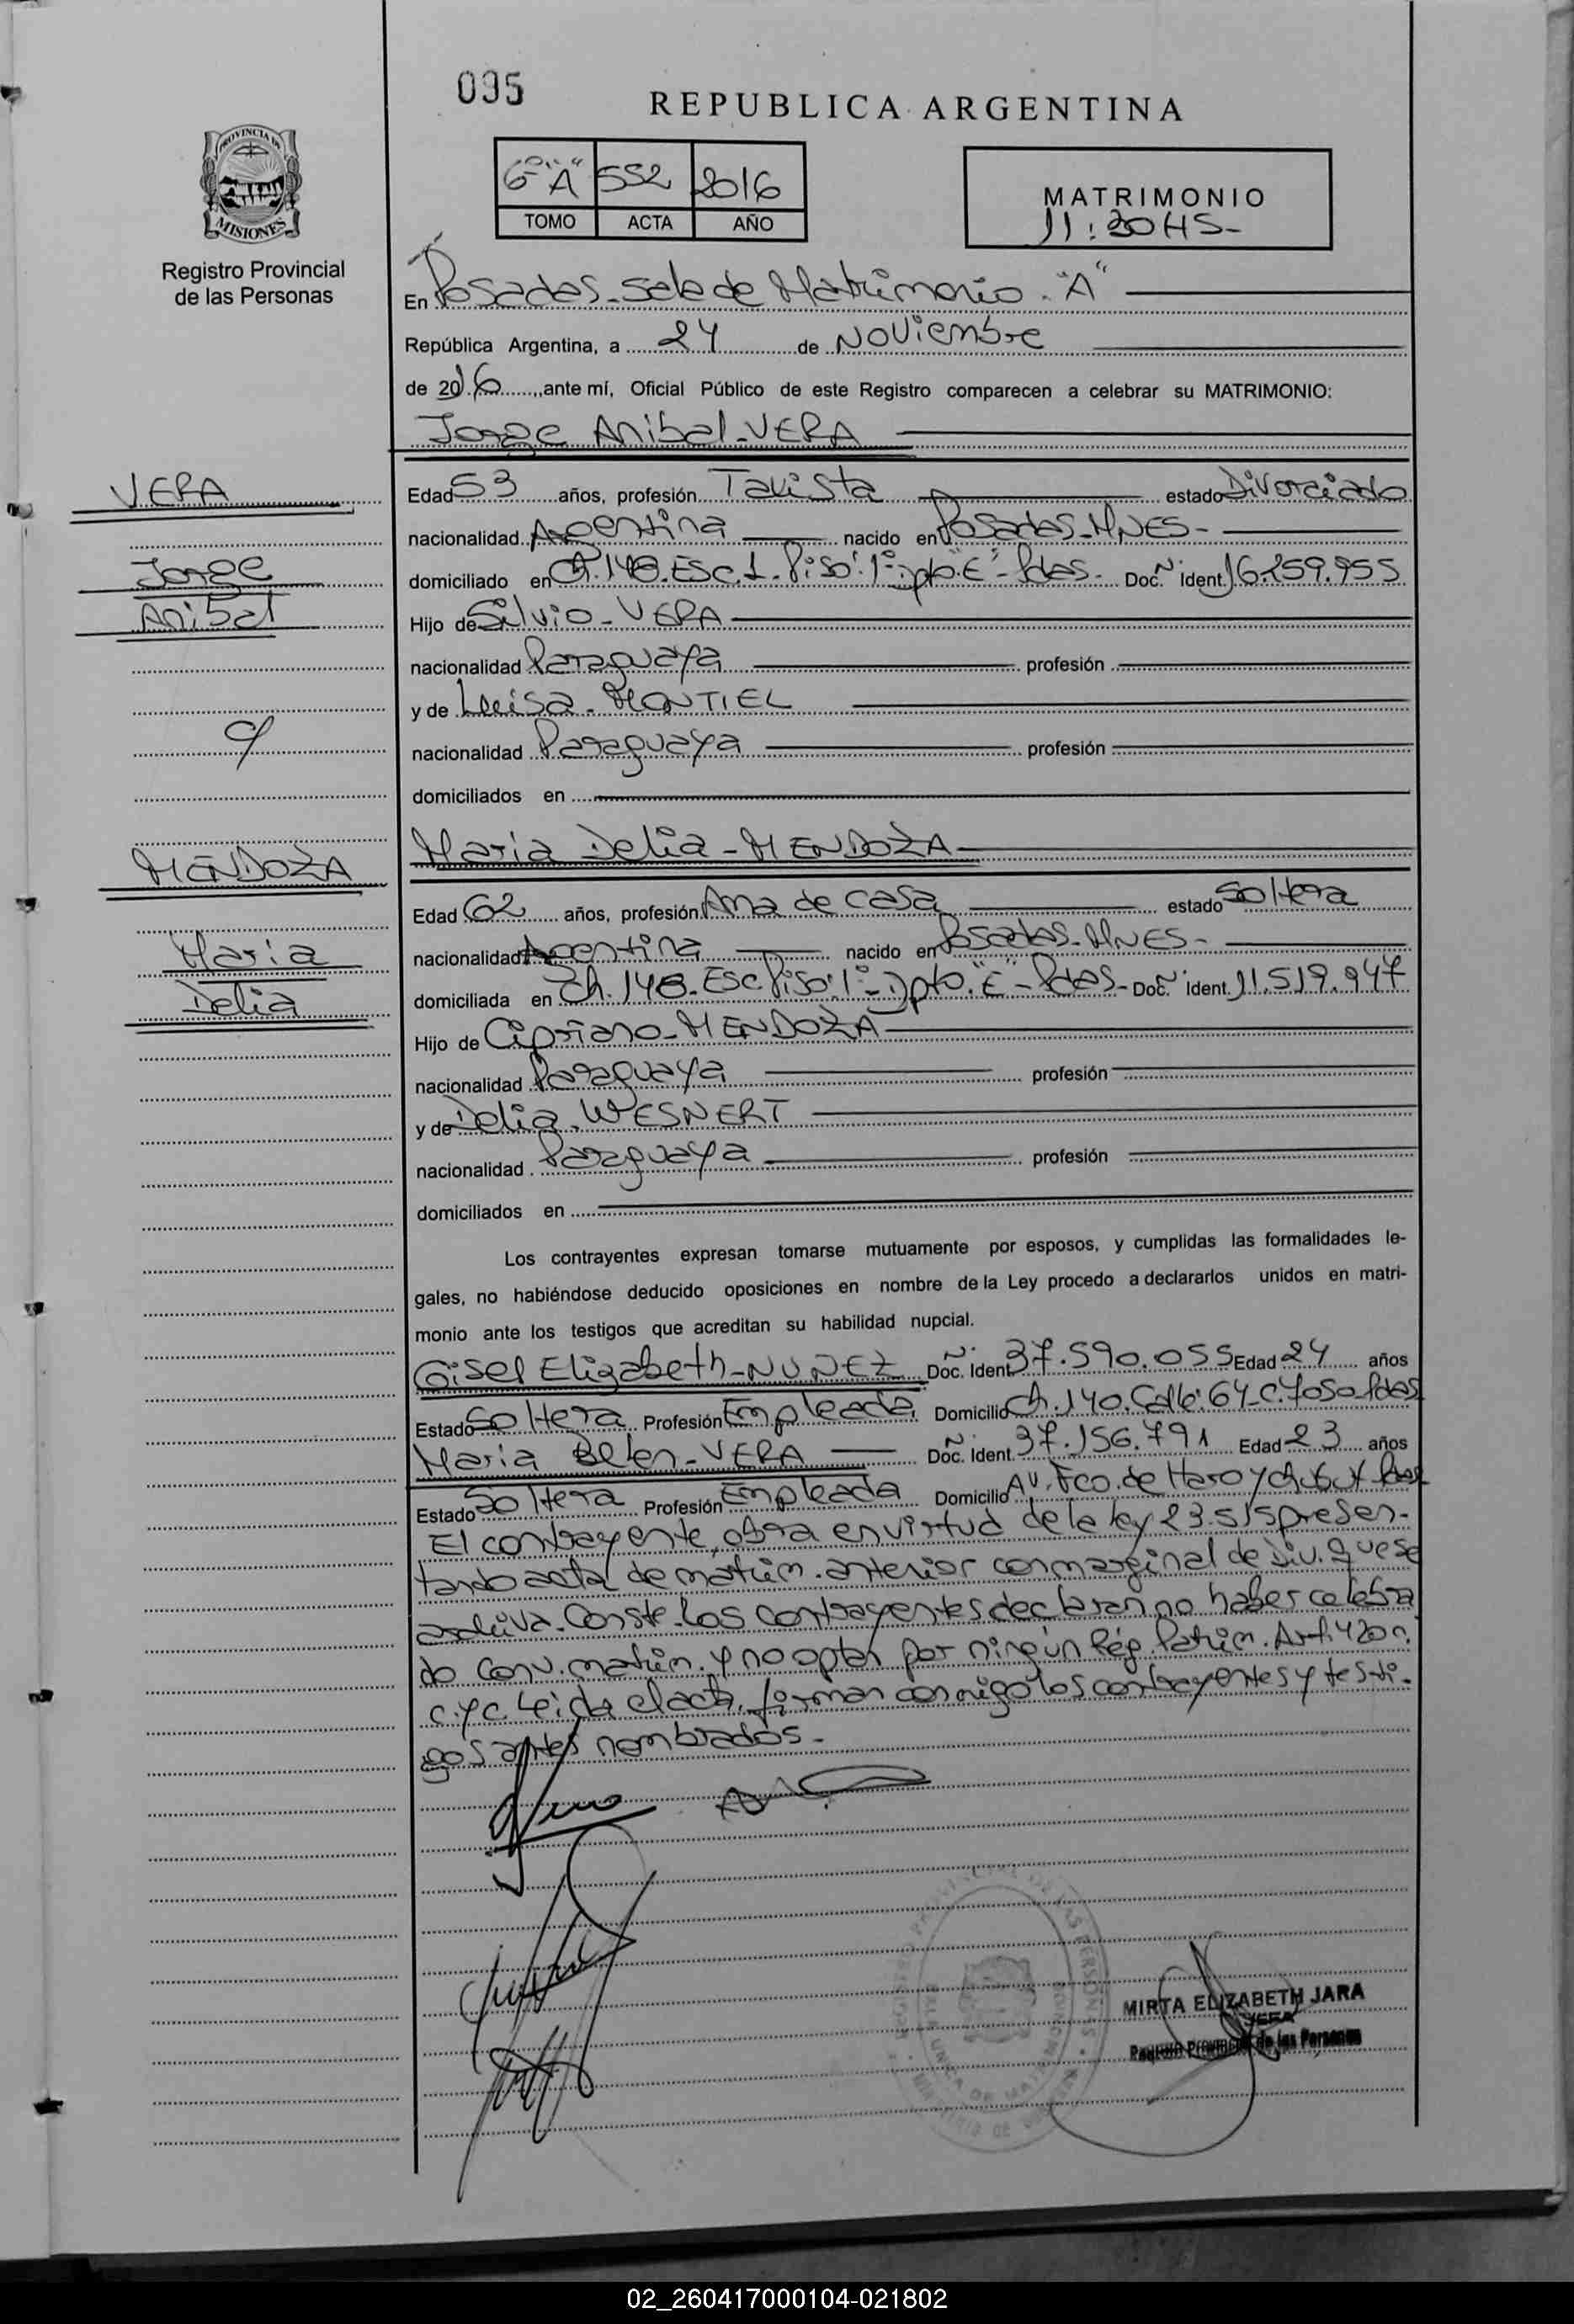 095
REPUBLICA ARGENTINA
6º "A" 552 2016
TOMO ACTA AÑO
MATRIMONIO
11:30 HS-
PROVINCIA DE
MISIONES
Registro Provincial
de las Personas
En Posadas-Sala de Matrimonio. "A"
República Argentina, a 24 de Noviembre
de 2016, ante mí, Oficial Público de este Registro comparecen a celebrar su MATRIMONIO:
Jorge Anibal-VERA
VERA
Jorge
Anibal
c/
MENDOZA
Maria
Delia
Edad 53 años, profesión Taxista estado Divorciado
nacionalidad Argentina nacido en Posadas-MNES-
domiciliado en Ch.148.Esc.1.Piso:1º-Dpto."E"-Pdas- Doc. Ident. 16.259.955
Hijo de Silvio-VERA
nacionalidad Paraguaya profesión
y de Luisa-MONTIEL
nacionalidad Paraguaya profesión
domiciliados en
Maria Delia-MENDOZA
Edad 62 años, profesión Ama de casa estado Soltera
nacionalidad Argentina nacido en Posadas-MNES-
domiciliada en Ch.148.Esc.Piso:1º-Dpto."E"-Pdas- Doc. Ident. 11.519.947
Hijo de Cipriano-MENDOZA
nacionalidad Paraguaya profesión
y de Delia.WESNERT
nacionalidad Paraguaya profesión
domiciliados en
Los contrayentes expresan tomarse mutuamente por esposos, y cumplidas las formalidades le-
gales, no habiéndose deducido oposiciones en nombre de la Ley procedo a declararlos unidos en matri-
monio ante los testigos que acreditan su habilidad nupcial.
Gisel Elizabeth-NUÑEZ Doc. Ident. 37.590.055 Edad 24 años
Estado Soltera Profesión Empleada Domicilio Ch.140.Calle:64-C.7050-Pdas
Maria Belen-VERA Doc. Ident. 37.156.791 Edad 23 años
Estado Soltera Profesión Empleada Domicilio Av. Fco. de Haro y
El contrayente, obra en virtud de la ley 23.515 presen-
tando acta de matrim. anterior con marginal de Div. que se
archiva. Conste. Los contrayentes declaran no haber celebra
do Conv. matrim. y no optan por ningún Rég. Patrim. Art. 420
c.y c. Leída el acta, firman conmigo los contrayentes y testi-
gos antes nombrados.-
MIRTA ELIZABETH JARA
Registro Provincial de las Personas
02_260417000104-021802